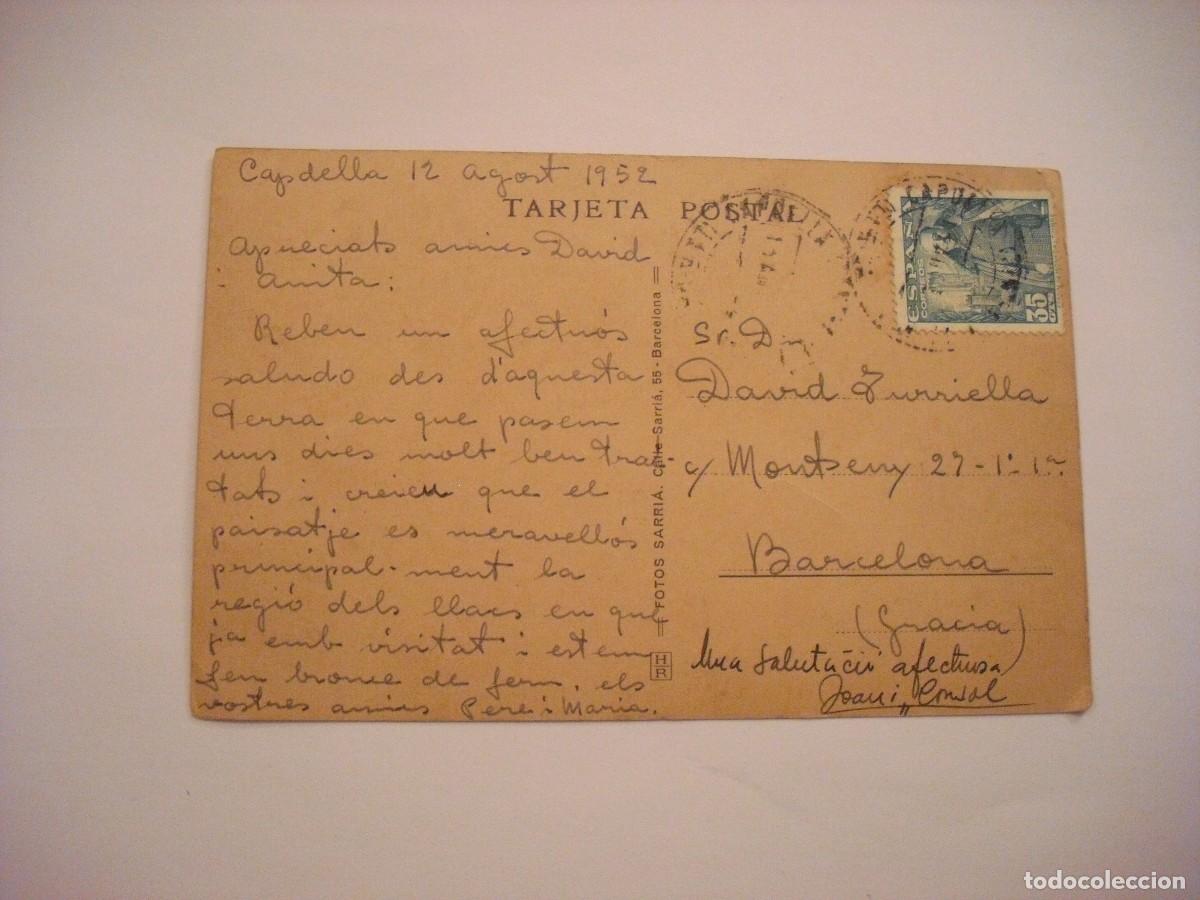 Capdella 12 agost 1952
TARJETA POSTAL
Apreciats amics David
i Anita:
Reben un afectuós
saludo des d'aquesta
terra en que pasem
uns dies molt ben trac-
tats i creieu que el
paisatje es meravellós
principal-ment la
regió dels llacs en que
ja emb visitat i estem
fen bronce de ferm, els
vostres amics Pere i Maria.
FOTOS SARRIÁ. Calle Sarriá, 55 - Barcelona
HR
ESPAÑA
CORREOS
35
CTS
Sr. Dn
David Turriella
c/ Montseny 27-1º-1ª
Barcelona
(Gracia)
Una salutació afectuosa
Joan i Consol
todocoleccion